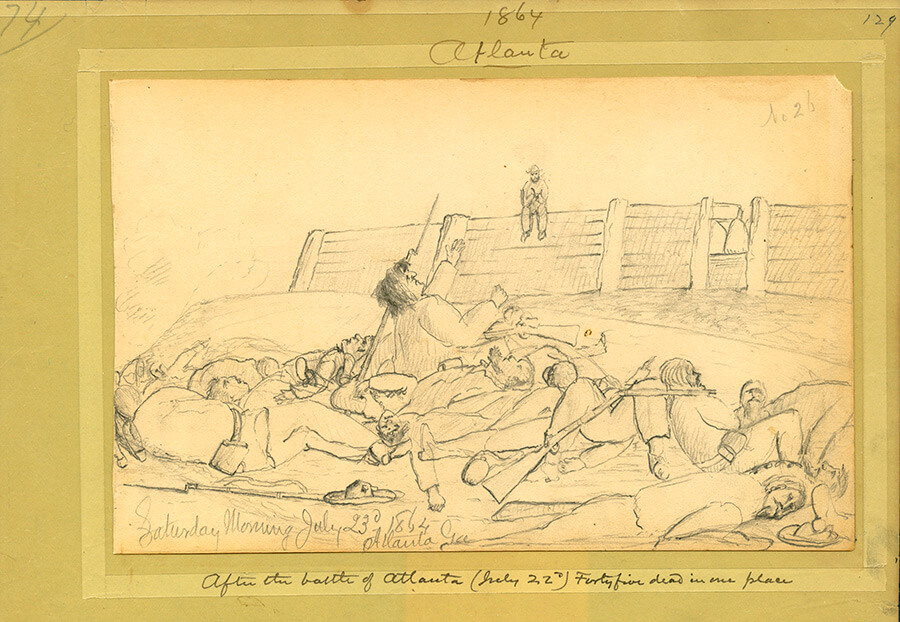 74
1864
129
Atlanta
No 26
Saturday Morning July 23d 1864
Atlanta Ga
After the battle of Atlanta (July 22d) Fortyfive dead in one place